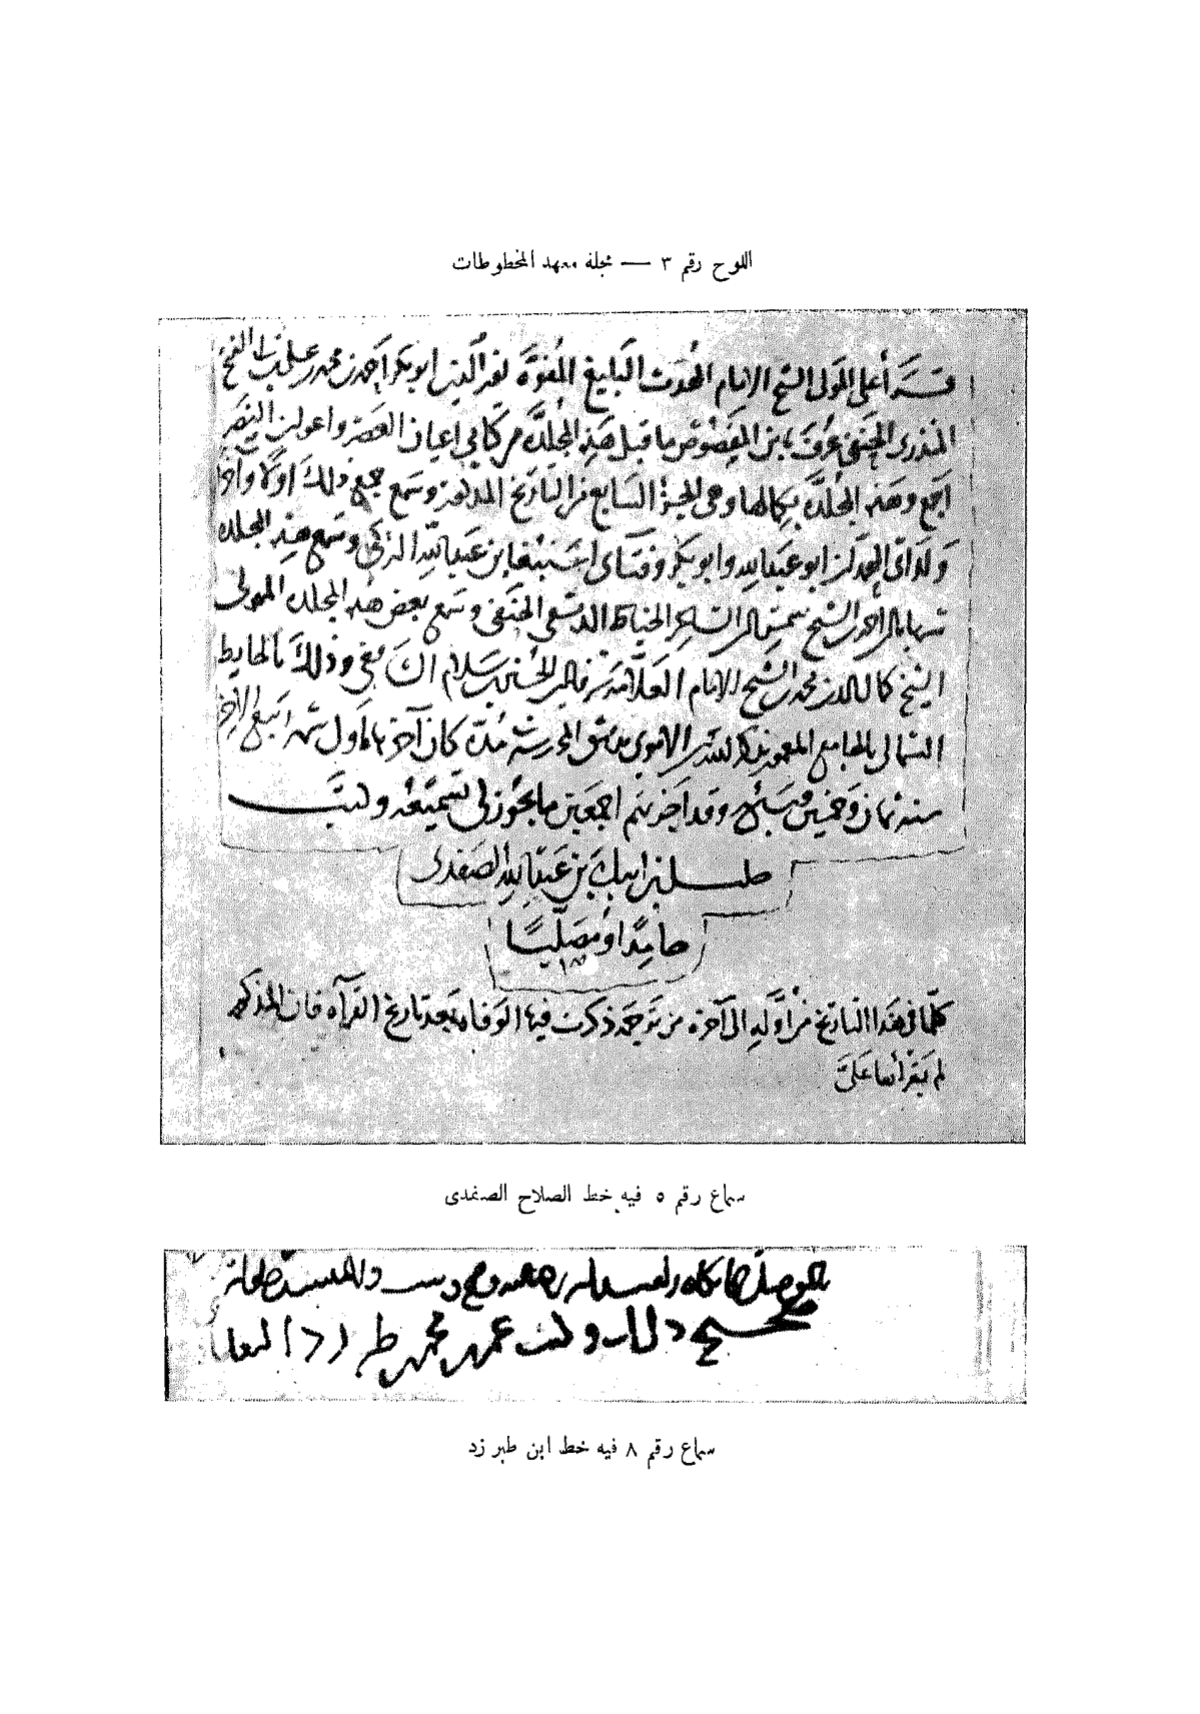 اللوح رقم ٣ — مجلة معهد المخطوطات
قرأ على المولى الشيخ الامام المحدث البليغ المفوه ابو بكر احمد بن محمد بن
المنذرى الحنفى عرف بابن المقصوص ما قبل هذه المجلدة من كتابي اعيان العصر واعوان النصر
اجمع وهذه المجلدة بكمالها وهى الجزء السابع من التاريخ المذكور وسمع جميع ذلك اولا وآخرا
ولداى المحمدان ابو عبد الله وابو بكر وفتاى اسنبغا بن عبد الله التركى وسمع هذه المجلدة
شهاب الدين احمد بن الشيخ شمس الدين الخياط الدمشقى الحنفى وسمع بعض هذه المجلدة المولى
الشيخ كمال الدين محمد بن الشيخ الامام العلامة شرف الدين الحسين بن سلام الشافعى وذلك بالحايط
الشمالى بالجامع المعمور بذكر الله الاموى بدمشق المحروسة فى مدة كان آخرها اول شهر ربيع الاخر
سنة ثمان وخمسين وسبع مائة وقد اجزتهم اجمعين ما يجوز لى تسميعه وكتب
خليل بن ايبك بن عبد الله الصفدى
حامدا ومصليا
كلما فى هذا التاريخ من أوله الى آخره من ترجمة ذكرت فيها الوفاة بعد تاريخ القرآه فان المذكور
لم يقرأها على
سماع رقم ٥ فيه خط الصلاح الصفدى
صحيح ذلك وكتب عمر بن محمد بن طبرزد
سماع رقم ٨ فيه خط ابن طبرزد